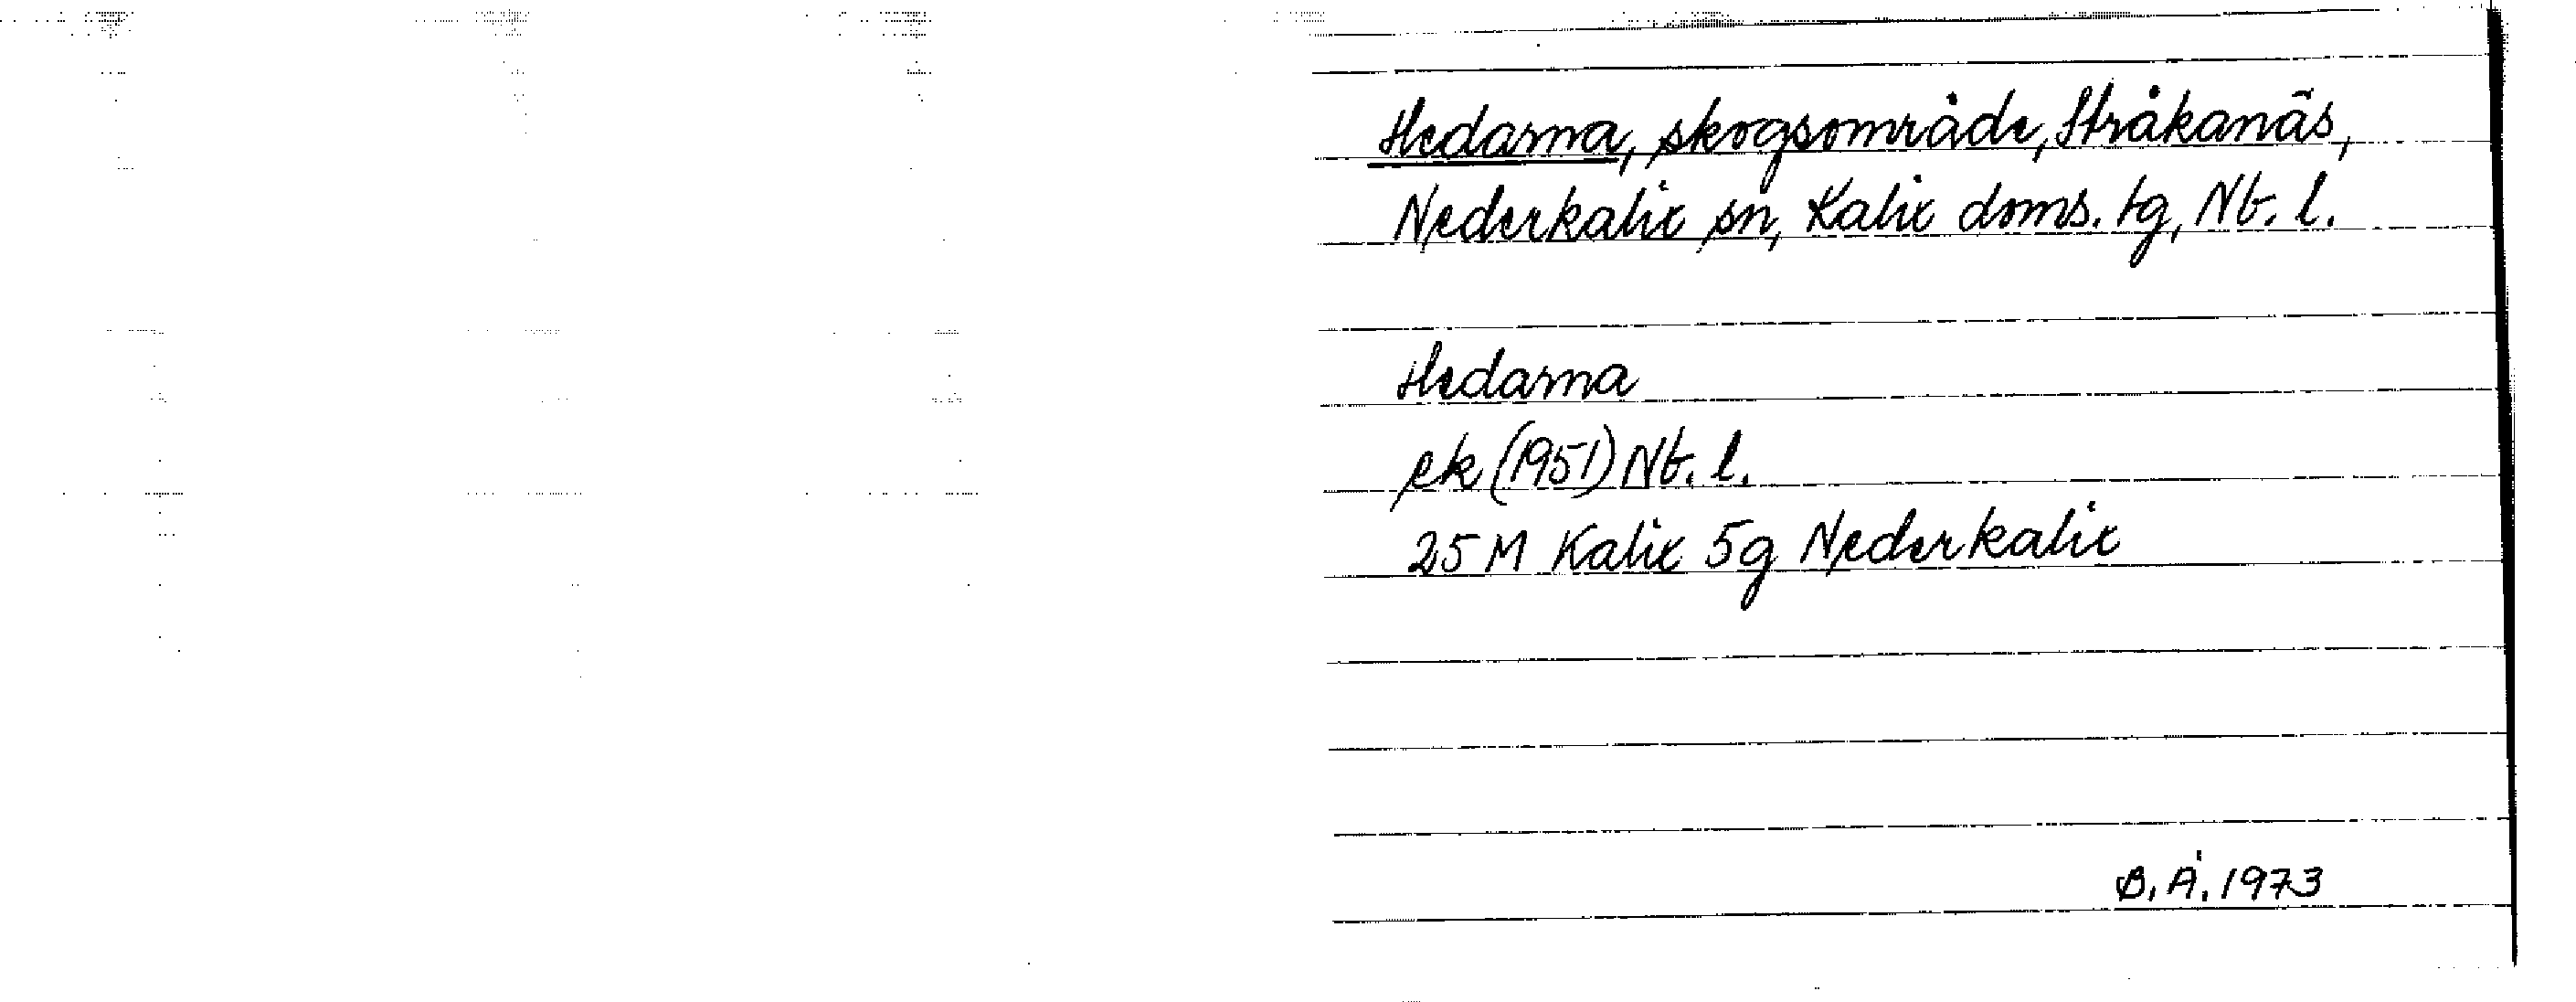 Hedarna, skogsområde, Stråkanäs,
Nederkalix sn, Kalix doms. tg, Nb. l.
Hedarna
ek (1951) Nb. l.
25 M Kalix 5g Nederkalix
B. Å. 1973